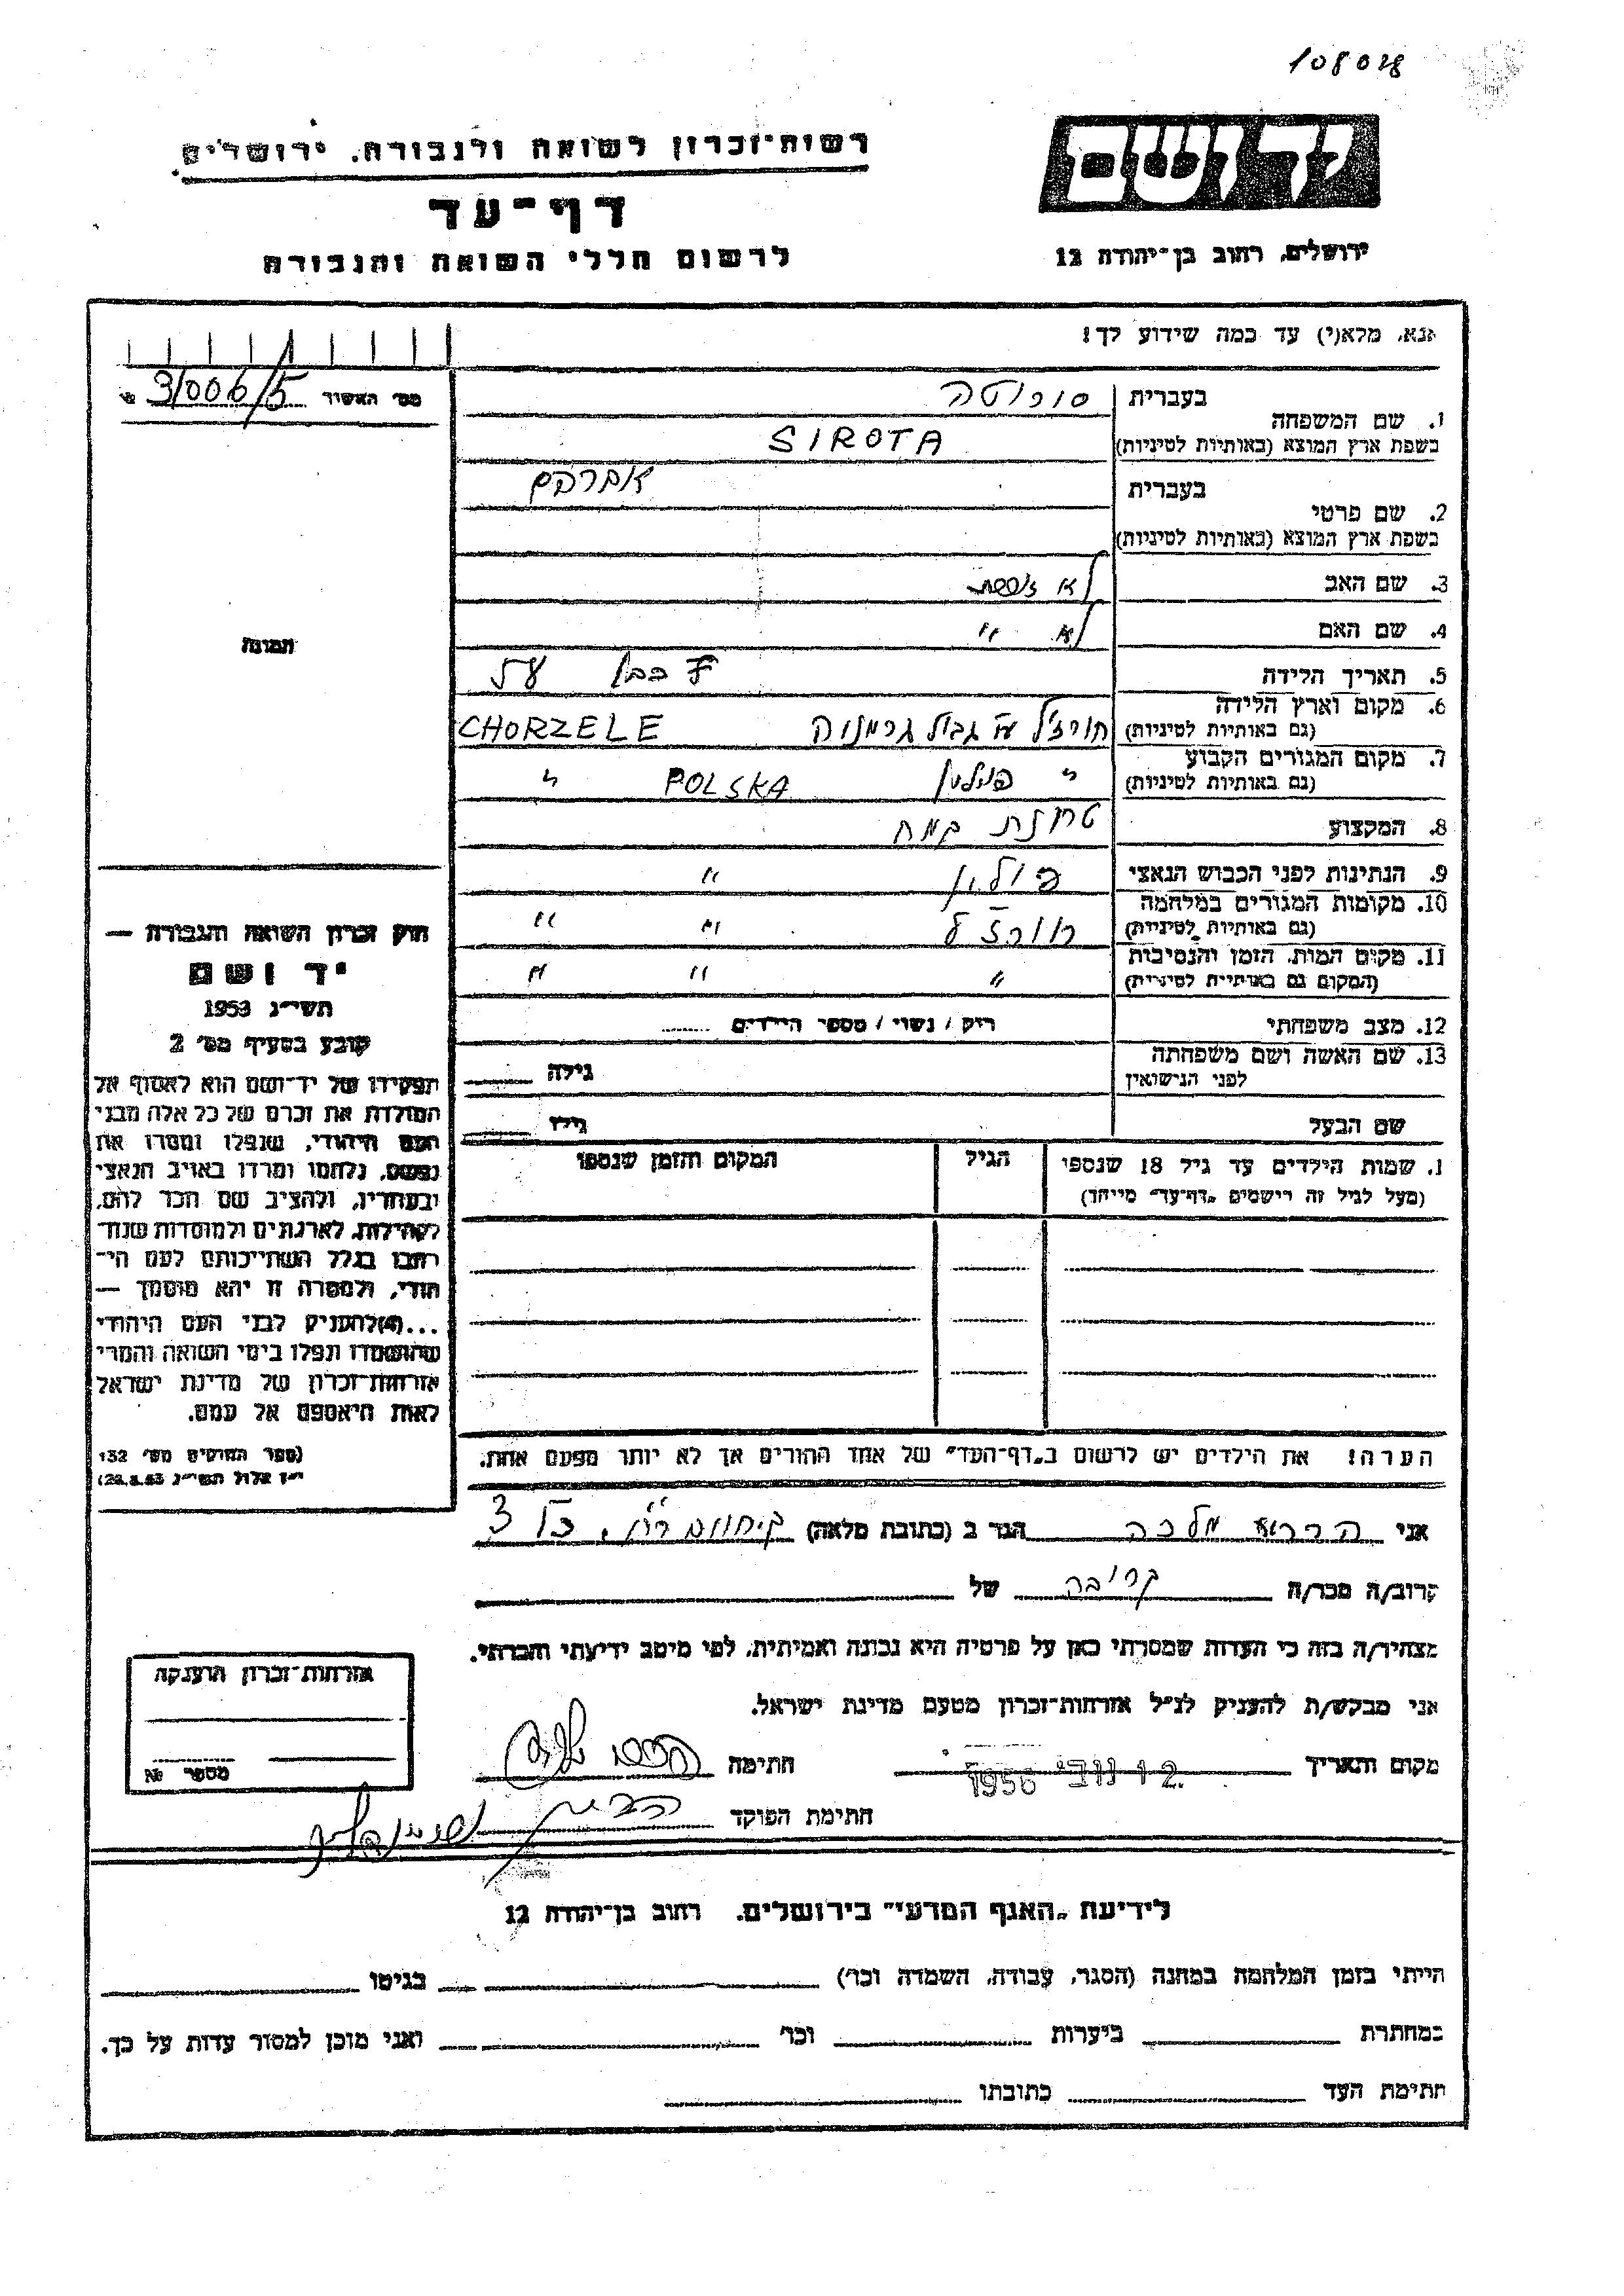 108028
יד ושם
רשות־זכרון לשואה ולגבורה. ירושלים
דף־עד
לרשום חללי השואה והגבורה
ירושלים, רחוב בן־יהודה 12
אנא, מלא(י) עד כמה שידוע לך!
מס׳ האשור
בעברית סורוטה
1. שם המשפחה
בשפת ארץ המוצא (באותיות לטיניות) SIROTA
בעברית אברהם
2. שם פרטי
בשפת ארץ המוצא (באותיות לטיניות)
3. שם האב לא
4. שם האם לא "
תמונה
5. תאריך הלידה
6. מקום וארץ הלידה
(גם באותיות לטיניות) חורז׳ל על גבול גרמניה CHORZELE
7. מקום המגורים הקבוע
(גם באותיות לטיניות) " פולין POLSKA "
8. המקצוע טחנת קמח
9. הנתינות לפני הכבוש הנאצי פולין "
10. מקומות המגורים במלחמה
(גם באותיות לטיניות) חורז׳ל " "
11. מקום המות, הזמן והנסיבות
(המקום גם באותיות לטיניות) " " "
12. מצב משפחתי רוק / נשוי / מספר הילדים
13. שם האשה ושם משפחתה
לפני הנישואין גילה
שם הבעל גילו
חוק זכרון השואה והגבורה —
יד ושם
תשי״ג 1953
קובע בסעיף מס׳ 2
תפקידו של יד־ושם הוא לאסוף אל
המולדת את זכרם של כל אלה מבני
העם היהודי, שנפלו ומסרו את
נפשם, נלחמו ומרדו באויב הנאצי
ובעוזריו, ולהציב שם וזכר להם,
לקהילות, לארגונים ולמוסדות שנח־
רבו בגלל השתייכותם לעם הי־
הודי, ולמטרה זו יהא מוסמך —
...(4) להעניק לבני העם היהודי
שהושמדו ונפלו בימי השואה והמרי
אזרחות־זכרון של מדינת ישראל
לאות היאספם אל עמם.
(ספר החוקים מס׳ 132
י״ז אלול תשי״ג 28.8.53)
1. שמות הילדים עד גיל 18 שנספו
(מעל לגיל זה רושמים „דף־עד״ מיוחד)
הגיל
המקום והזמן שנספו
הערה! את הילדים יש לרשום ב„דף־העד״ של אחד ההורים אך לא יותר מפעם אחת.
אני מלכה הגר ב (כתובת מלאה) 3
קרוב/ה מכר/ה קרובה של
מצהיר/ה בזה כי העדות שמסרתי כאן על פרטיה היא נכונה ואמיתית, לפי מיטב ידיעתי והכרתי.
אני מבקש/ת להעניק לנ״ל אזרחות־זכרון מטעם מדינת ישראל.
מקום ותאריך 12 נוב׳ 1956 חתימה
חתימת הפוקד
אזרחות־זכרון הוענקה
מספר №
לידיעת „האגף המדעי״ בירושלים. רחוב בן־יהודה 12
הייתי בזמן המלחמה במחנה (הסגר, עבודה, השמדה וכו׳) בגיטו
במחתרת ביערות וכו׳ ואני מוכן למסור עדות על כך.
חתימת העד כתובתו